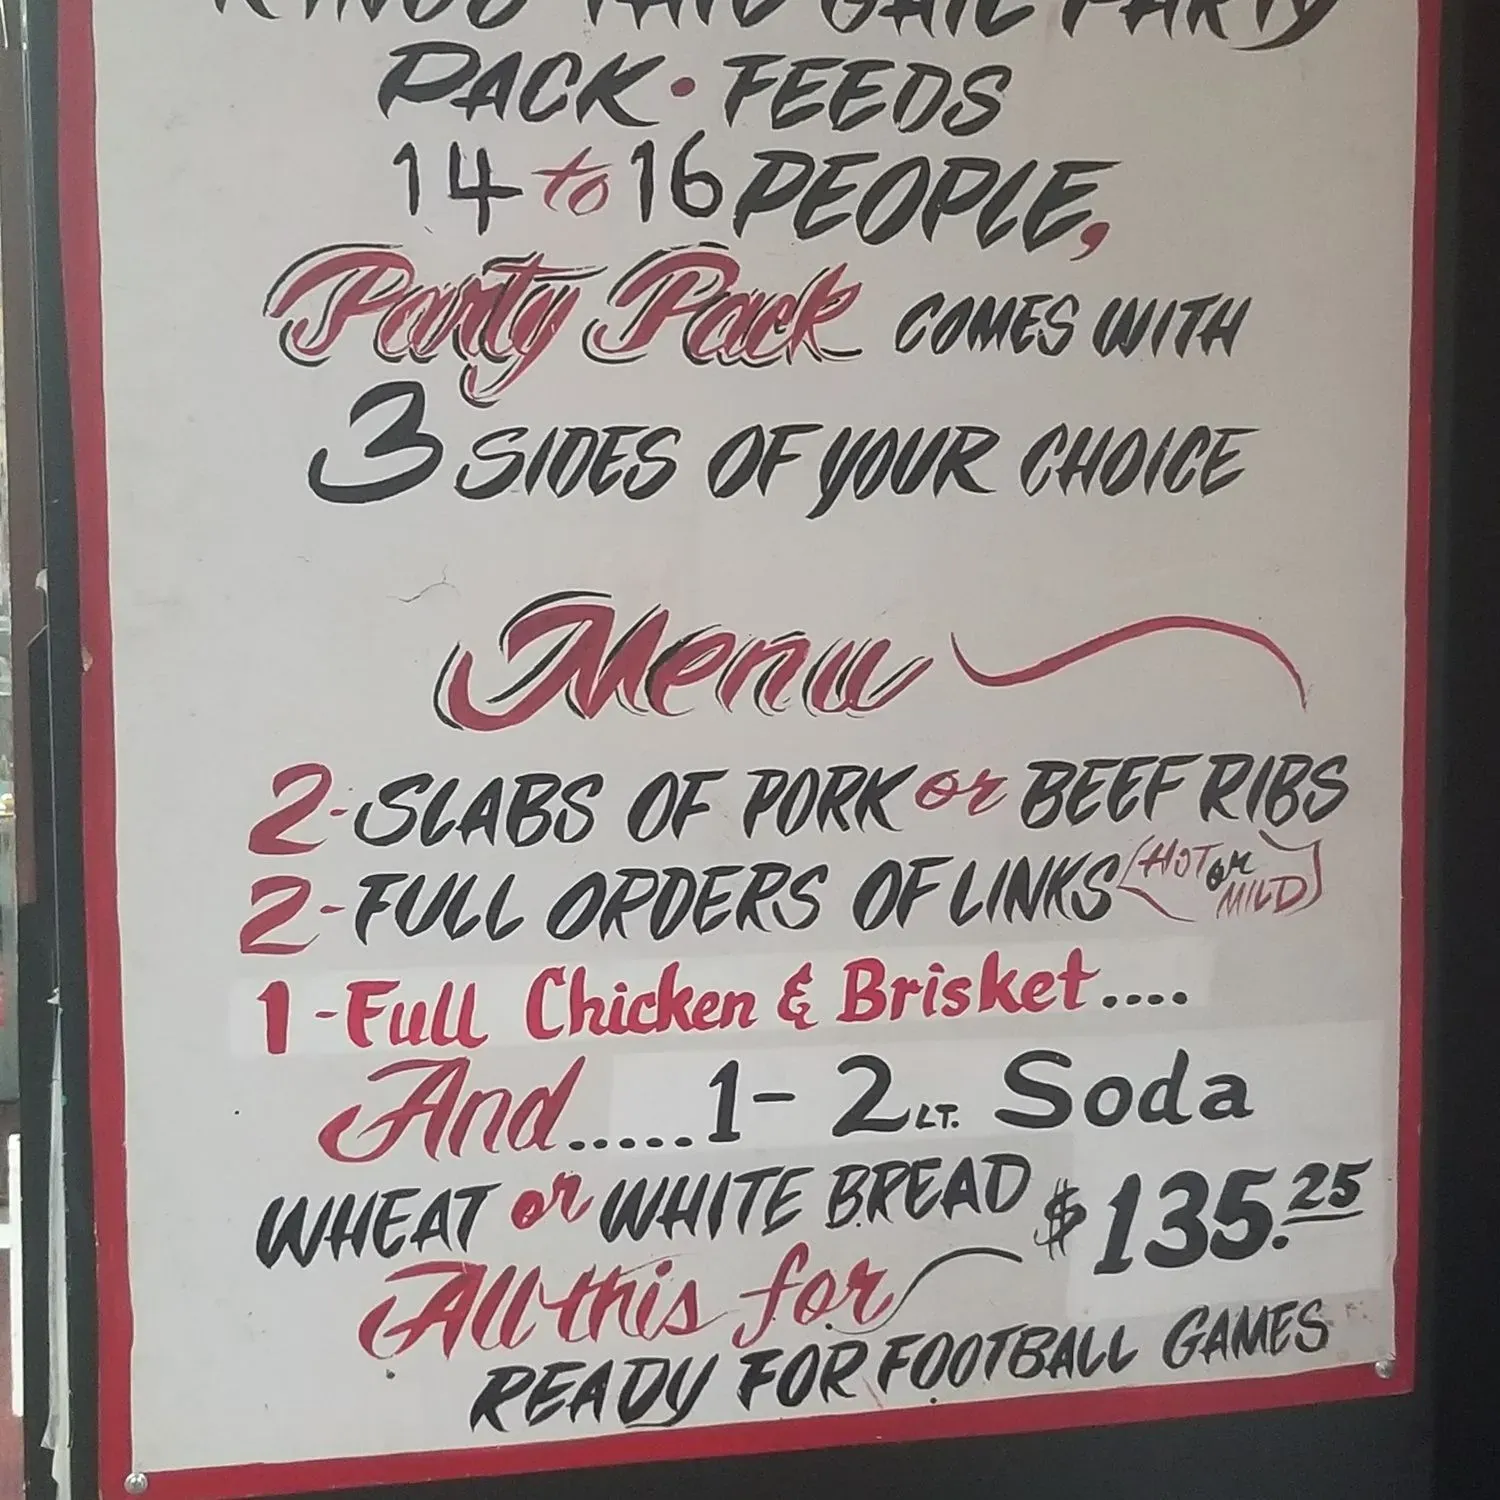 KINGS TAIL GAIL PARTY
PACK • FEEDS
14 to 16 PEOPLE,
Party Pack COMES WITH
3 SIDES OF YOUR CHOICE
Menu
2-SLABS OF PORK or BEEF RIBS
2-FULL ORDERS OF LINKS (HOT OR MILD)
1-Full Chicken & Brisket....
And.....1- 2 LT. Soda
WHEAT or WHITE BREAD $135.25
All this for
READY FOR FOOTBALL GAMES